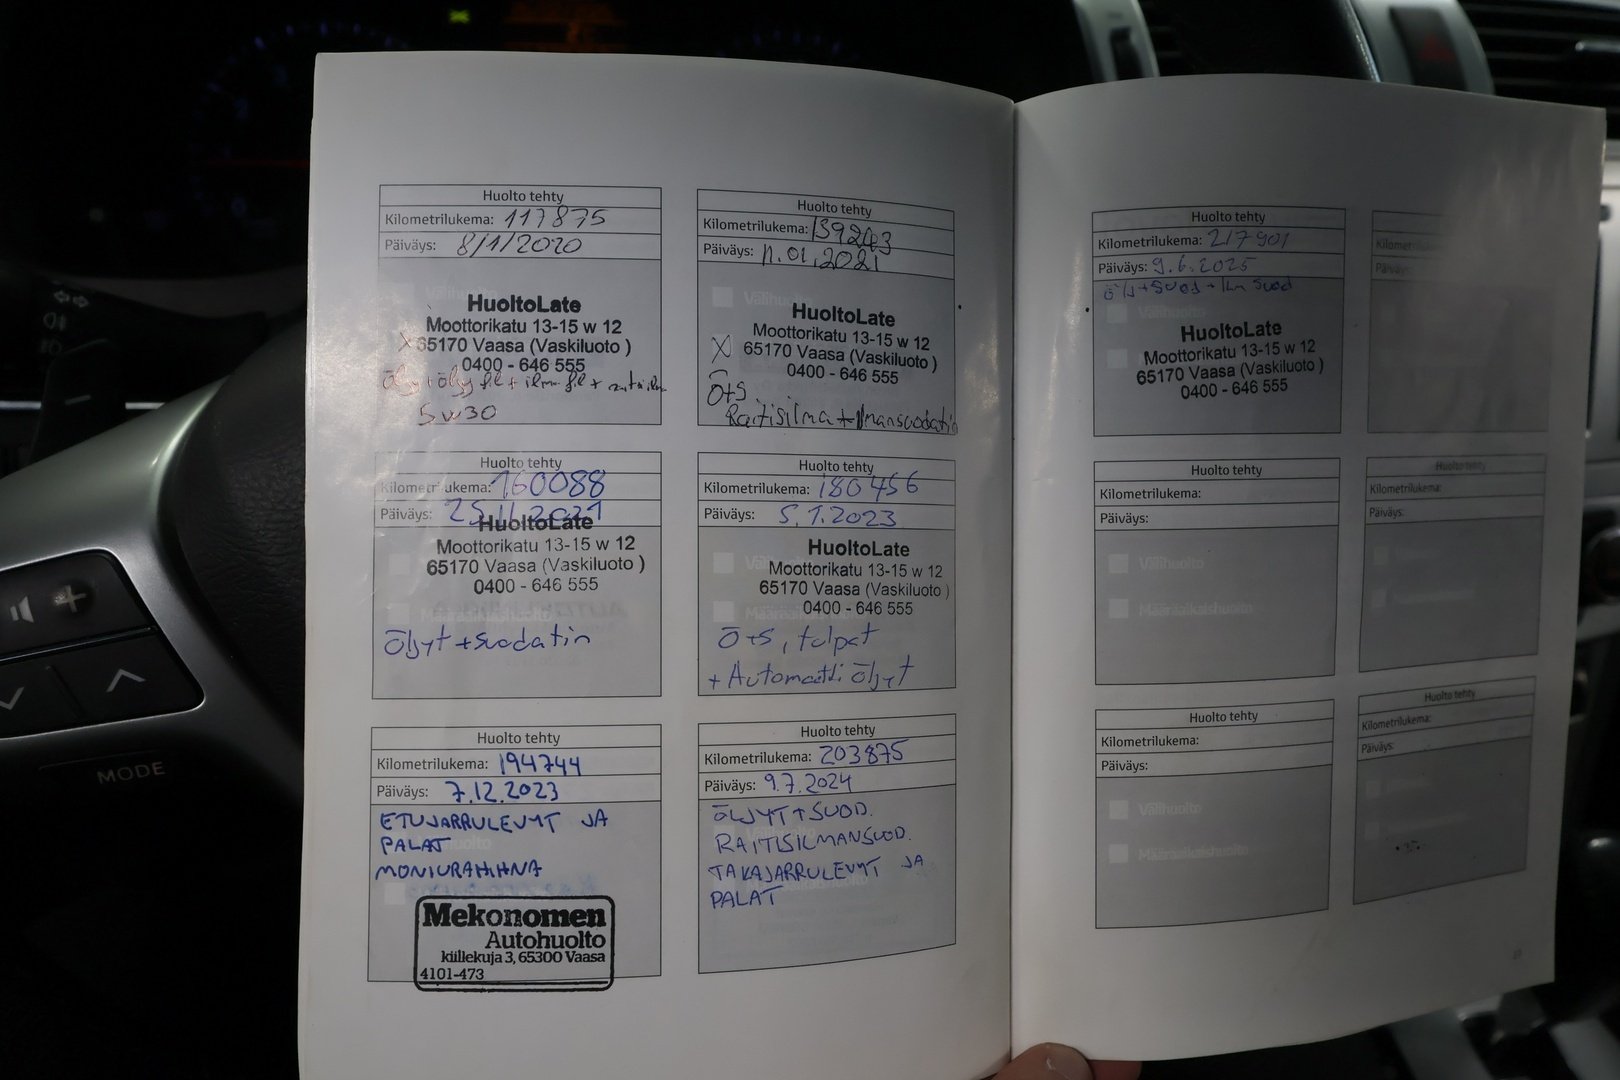 Huolto tehty
Kilometrilukema: 117875
Päiväys: 8/1/2020
Välihuolto
HuoltoLate
Moottorikatu 13-15 w 12
X 65170 Vaasa (Vaskiluoto )
0400 - 646 555
öljy + öljy fil + ilma fil +
5W30
Huolto tehty
Kilometrilukema: 139243
Päiväys: 11.01.2021
Välihuolto
HuoltoLate
Moottorikatu 13-15 w 12
X 65170 Vaasa (Vaskiluoto )
0400 - 646 555
Ö+S.
Raitisilma + Ilmansuodatin
Huolto tehty
Kilometrilukema: 160088
Päiväys: 25.11.2021
HuoltoLate
Moottorikatu 13-15 w 12
65170 Vaasa (Vaskiluoto )
0400 - 646 555
Määräaikaishuolto
Öljyt + suodatin
Huolto tehty
Kilometrilukema: 180456
Päiväys: 5.1.2023
HuoltoLate
Välihuolto
Moottorikatu 13-15 w 12
65170 Vaasa (Vaskiluoto )
0400 - 646 555
Määräaikaishuolto
Ö+S, tulpat
+ Automaatti öljyt
Huolto tehty
Kilometrilukema: 194744
Päiväys: 7.12.2023
ETUJARRULEVYT JA
PALAT
MONIURAHIHNA
Mekonomen
Autohuolto
kiillekuja 3, 65300 Vaasa
4101-473
Huolto tehty
Kilometrilukema: 203875
Päiväys: 9.7.2024
ÖLJYT + SUOD.
RAITISILMANSUOD.
TAKAJARRULEVYT JA
PALAT
Huolto tehty
Kilometrilukema: 217901
Päiväys: 9.6.2025
ölj + suod + Ilm suod
Välihuolto
HuoltoLate
Moottorikatu 13-15 w 12
65170 Vaasa (Vaskiluoto )
0400 - 646 555
Kilometrilukema:
Päiväys:
Huolto tehty
Kilometrilukema:
Päiväys:
Välihuolto
Määräaikaishuolto
Huolto tehty
Kilometrilukema:
Päiväys:
Huolto tehty
Kilometrilukema:
Päiväys:
Välihuolto
Määräaikaishuolto
Huolto tehty
Kilometrilukema:
Päiväys:
MODE